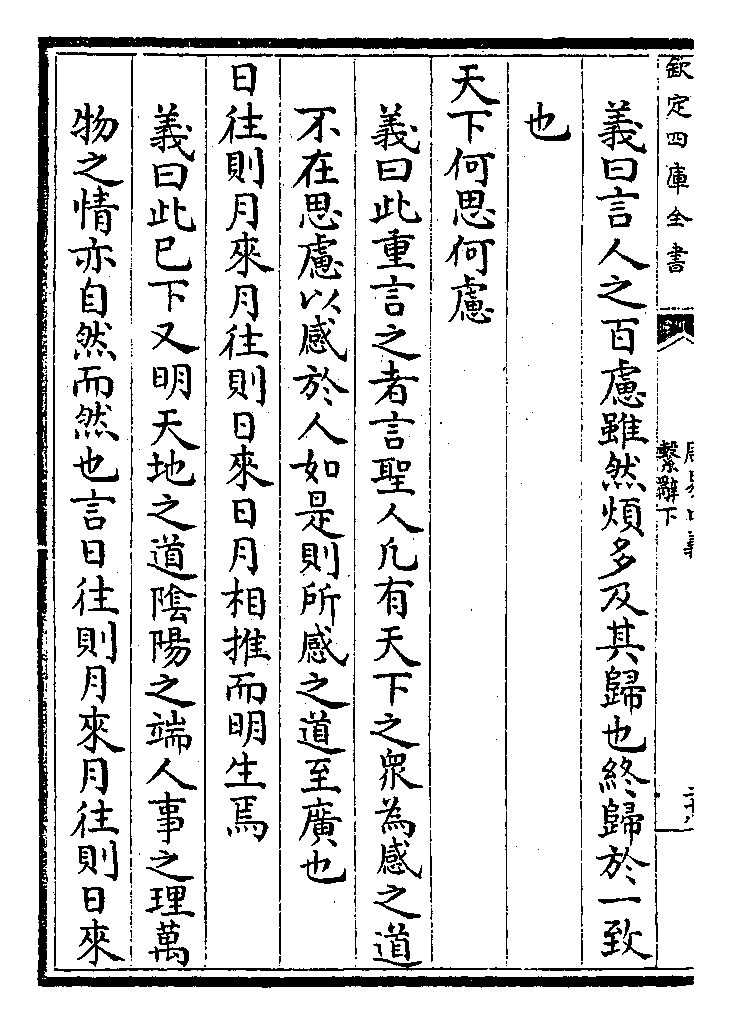 欽定四庫全書
繫辭下
義曰言人之百慮雖然煩多及其歸也終歸於一致
也
天下何思何慮
義曰此重言之者言聖人凡有天下之衆為感之道
不在思慮以感於人如是則所感之道至廣也
日往則月來月往則日來日月相推而明生焉
義曰此已下又明天地之道隂陽之端人事之理萬
物之情亦自然而然也言日往則月來月往則日來